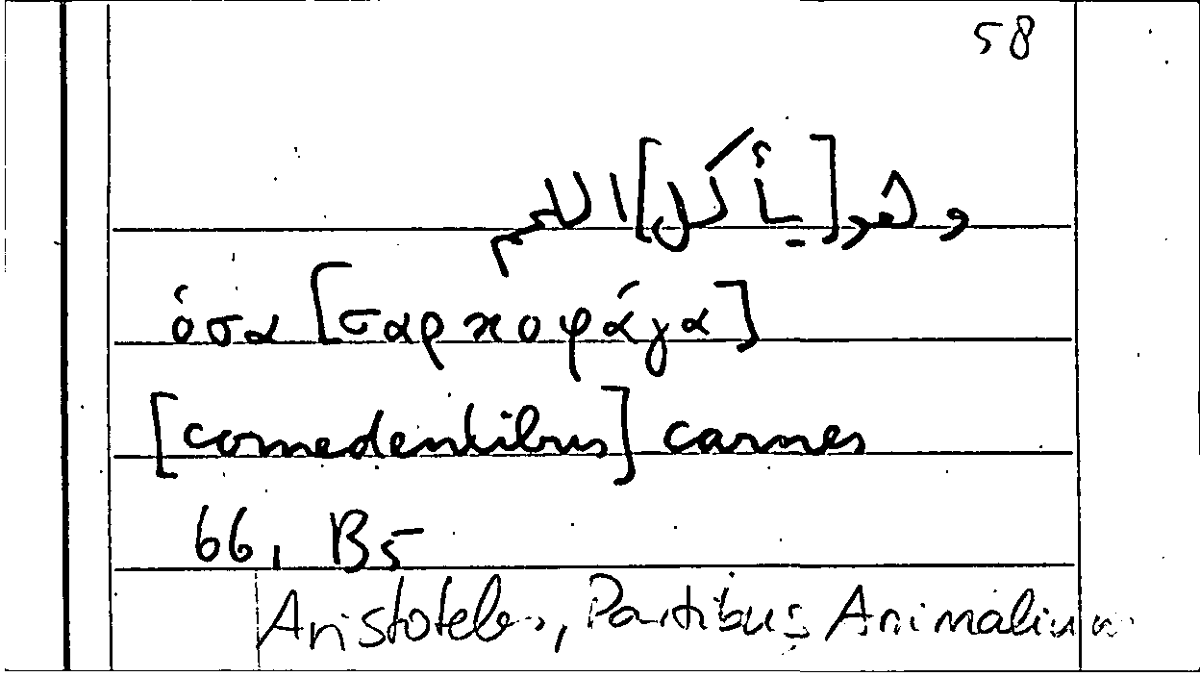 58
وهو [يأكل] اللحم
ὅσα [σαρκοφάγα]
[comedentibus] carnes
66, B5
Aristoteles, Partibus Animalium